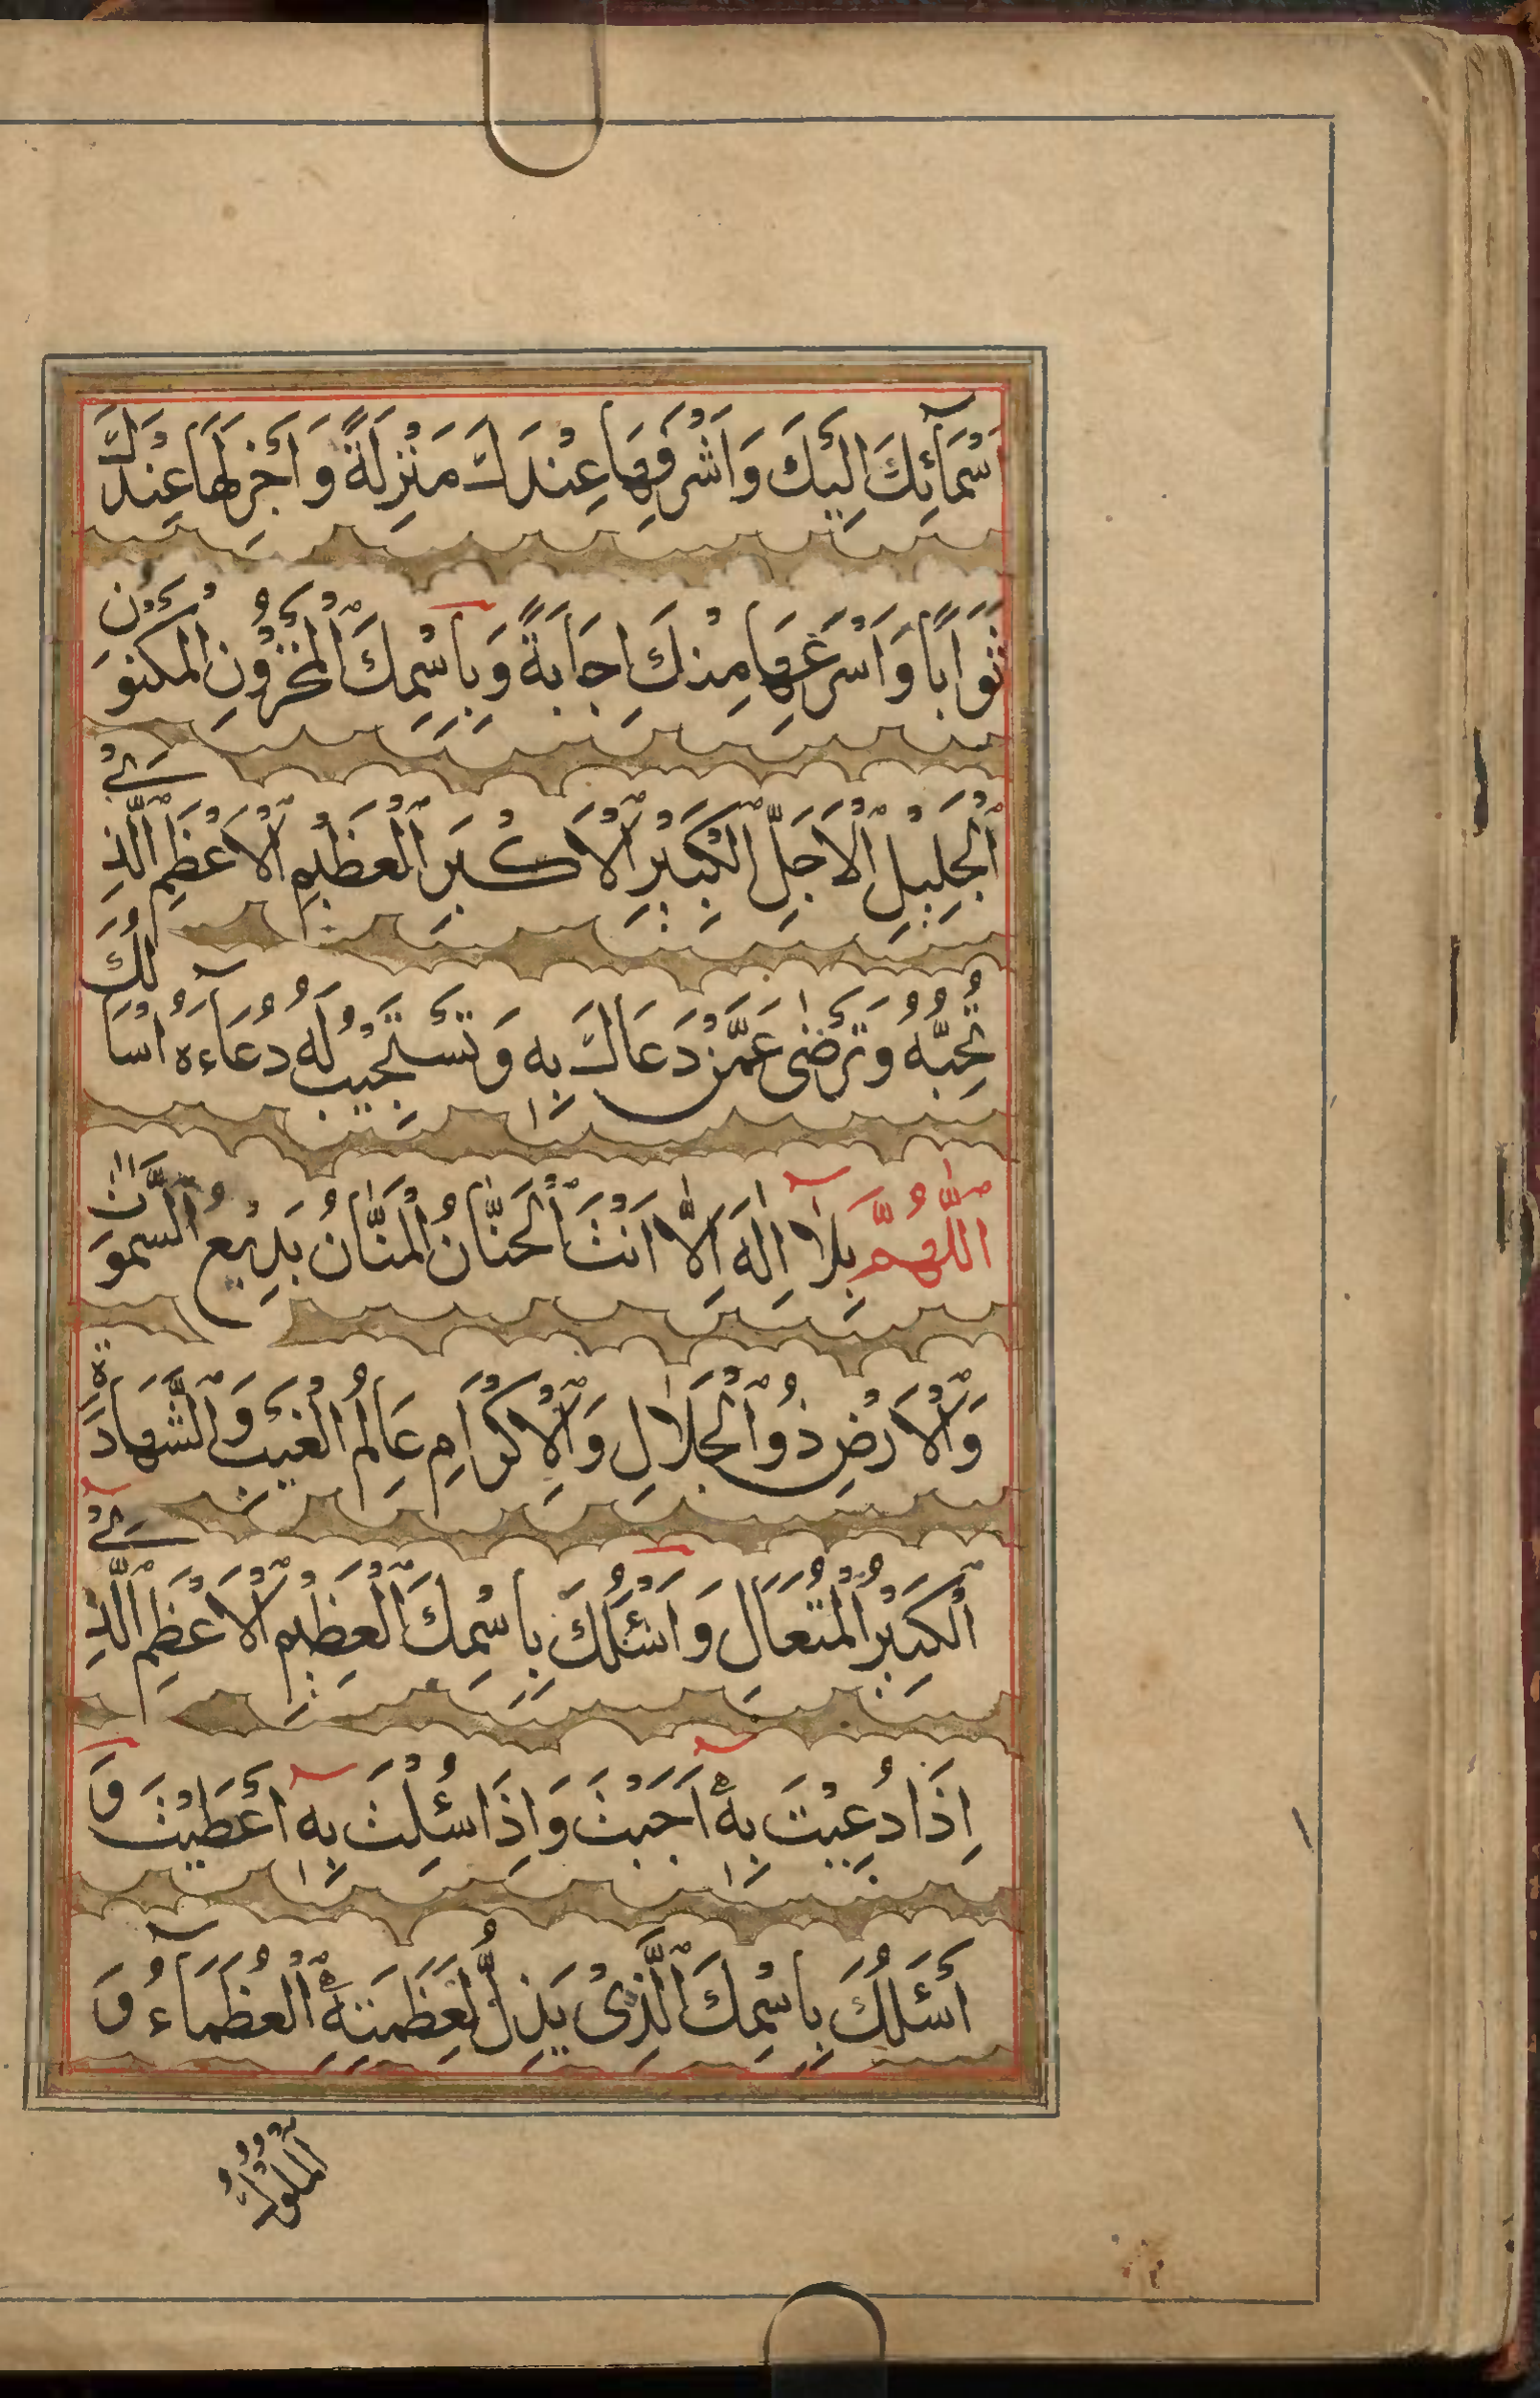 اَسْمَآئِكَ اِلَيْكَ وَاَشْرَفِهَا عِنْدَكَ مَنْزِلَةً وَاَجْزَلِهَا عِنْدَكَ
ثَوَابًا وَاَسْرَعِهَا مِنْكَ اِجَابَةً وَبِاسْمِكَ الْمَخْزُوْنِ الْمَكْنُوْنِ
الْجَلِيْلِ الْاَجَلِّ الْكَبِيْرِ الْاَكْبَرِ الْعَظِيْمِ الْاَعْظَمِ الَّذِيْ
تُحِبُّهُ وَتَرْضٰى عَمَّنْ دَعَاكَ بِهِ وَتَسْتَجِيْبُ لَهُ دُعَآءَهُ اَسْأَلُكَ
اللّٰهُمَّ بِلَآ اِلٰهَ اِلَّا اَنْتَ الْحَنَّانُ الْمَنَّانُ بَدِيْعُ السَّمٰوَاتِ
وَالْاَرْضِ ذُو الْجَلَالِ وَالْاِكْرَامِ عَالِمُ الْغَيْبِ وَالشَّهَادَةِ
الْكَبِيْرُ الْمُتَعَالِ وَاَسْئَلُكَ بِاسْمِكَ الْعَظِيْمِ الْاَعْظَمِ الَّذِيْ
اِذَا دُعِيْتَ بِهِ اَجَبْتَ وَاِذَا سُئِلْتَ بِهِ اَعْطَيْتَ وَ
اَسْئَلُكَ بِاسْمِكَ الَّذِيْ يَذِلُّ لِعَظَمَتِهِ الْعُظَمَآءُ وَ
الْمُلُوْكُ